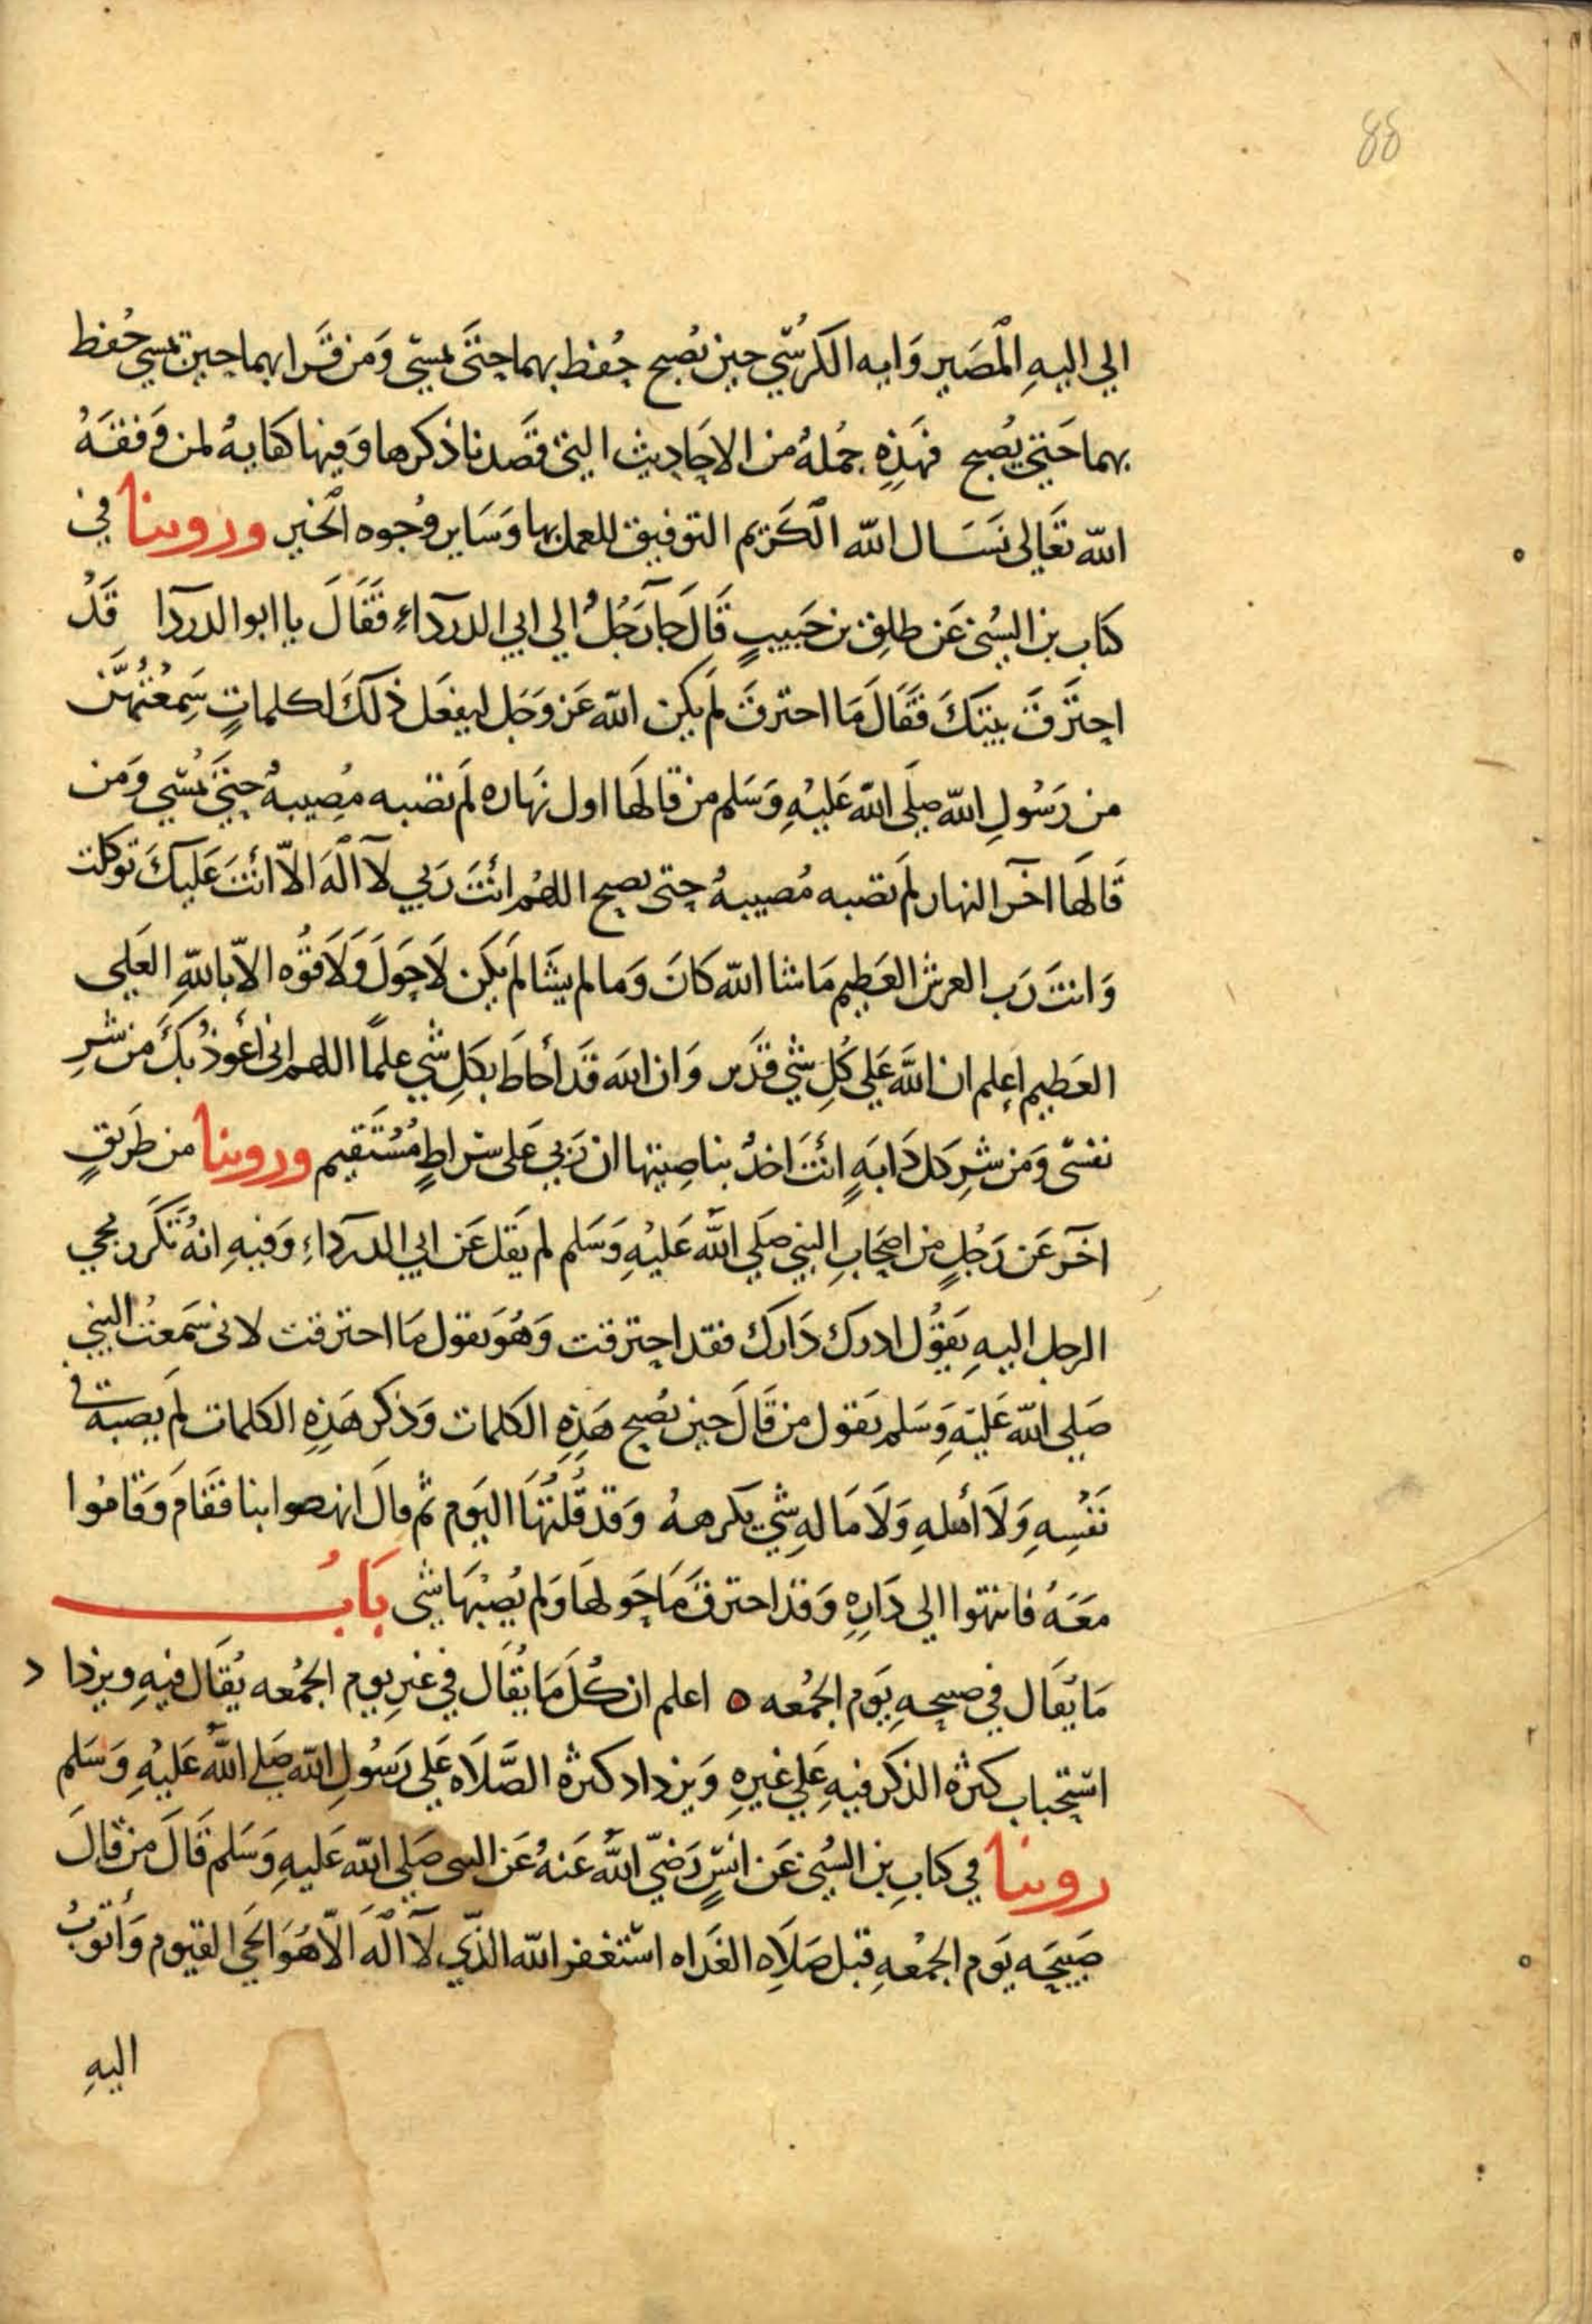 88
الي اليهِ المْصَير وَايه الكرُسّي حيز يصُبح حُفظ بهما حتَى يمسّي وَمن قَرا بهما حين يمسي حُفظ
بهما حَتيّ يصُبح فهَذِهِ جُملهُ من الاحَاديث التيّ قصَدنا ذكرها وَفيها كفايهُ لمن وَفقَهُ
الله تعَالي نسَال الله الكَريم التوفيق للعمل بها وَسَاير وُجوه الخْير وروينا في
كتاب بن السُني عَن طلِق بن حَبيبٍ قَالَ جآ رَجُلُ الي ابي الدردآءِ فقَالَ يا ابو الدردآ قَدْ
احترَقَ بيتكَ فقَالَ مَا احترقَ لمَ يكن الله عَز وَجَل ليفعَل ذلكَ لكلماتٍ سَمِعْتُهنَّ
من رَسُولِ الله صلَي الله عَليْهِ وَسَلم من قالهَا اول نهَاره لمَ تصبه مُصِيبهُ حتيَّ يمُسّي وَمن
قَالهَا آخر النهار لمَ تصبه مُصيبهُ حتى يصبح اللهُم أنتَ رَبي لآ الهَ الاّ أنتَ عَليكَ توكلت
وَانتَ رَب العرش العَظيم مَا شا الله كانَ وَما لم يشَا لمَ يكَن لاَ حَولَ وَلاَ قوُه الاّ باللهِ العَلي
العَظيم اعلم ان اللَّه عَلي كُلِ شّي قدَير وَان الله قدَ أحَاطَ بكلِ شّي علماً اللهم اني أعوُذ بكَ من شرِ
نفسّي وَمن شرِ كل دَابهٍ انتَ اخذُ بناصِيتها ان رَبي عَلي سراطٍ مُستَقيم وروينا من طرَيقٍ
اخَر عَن رَجُلٍ من اصحَابِ النبي صَلي الله عَليْهِ وَسَلم لم يقَل عَن ابي الدردآءِ وَفيهِ انهُ تكَرر مجي
الرجل اليهِ يقوُل ادرك دَارك فقد احترقت وَهُوَ يقول مَا احترقت لاني سَمعتُ النبي
صَلي الله عَليَهِ وَسَلم يقول من قَالَ حين يصُبح هَذِهِ الكلمات وَذكر هَذِهِ الكلمات لمَ يصبهُ في
نَفْسِهِ وَلاَ أهلهِ وَلاَ مَالهِ شّي يكرههُ وَقد قُلتُهَا اليَوم ثم قالَ انهضوا بنا فقَامَ وَقامُوا
معَهُ فانتهوا الي دَارِهِ وَقد احترقَ مَا حَولهَا وَلم يُصبْهَا شّي بَابُ
مَا يقَال في صبيحهِ يَوم الجمُعه ه اعلم ان كُلَ مَا يقَال في غيرِ يوم الجمُعه يُقاَل فيهِ ويزدا د
استحباب كثرة الذكر فيهِ عَلي غيرِهِ وَيزداد كثرة الصَّلاَه عَلي رَسُولِ الله صَلي اللهُ عَليْهِ وَسَلم
روينا في كتابِ بن السُني عَن انسٍ رَضيّ اللهُ عَنهُ عَن النبي صَلي الله عَليهِ وَسَلم قَالَ من قالَ
صَبيحَه يَوم الجمْعهِ قبل صَلاَهِ الغدَاه استغفر الله الذّي لآ الهَ الاّ هُوَ الحَي القيوم وَأتوبُ
اليهِ